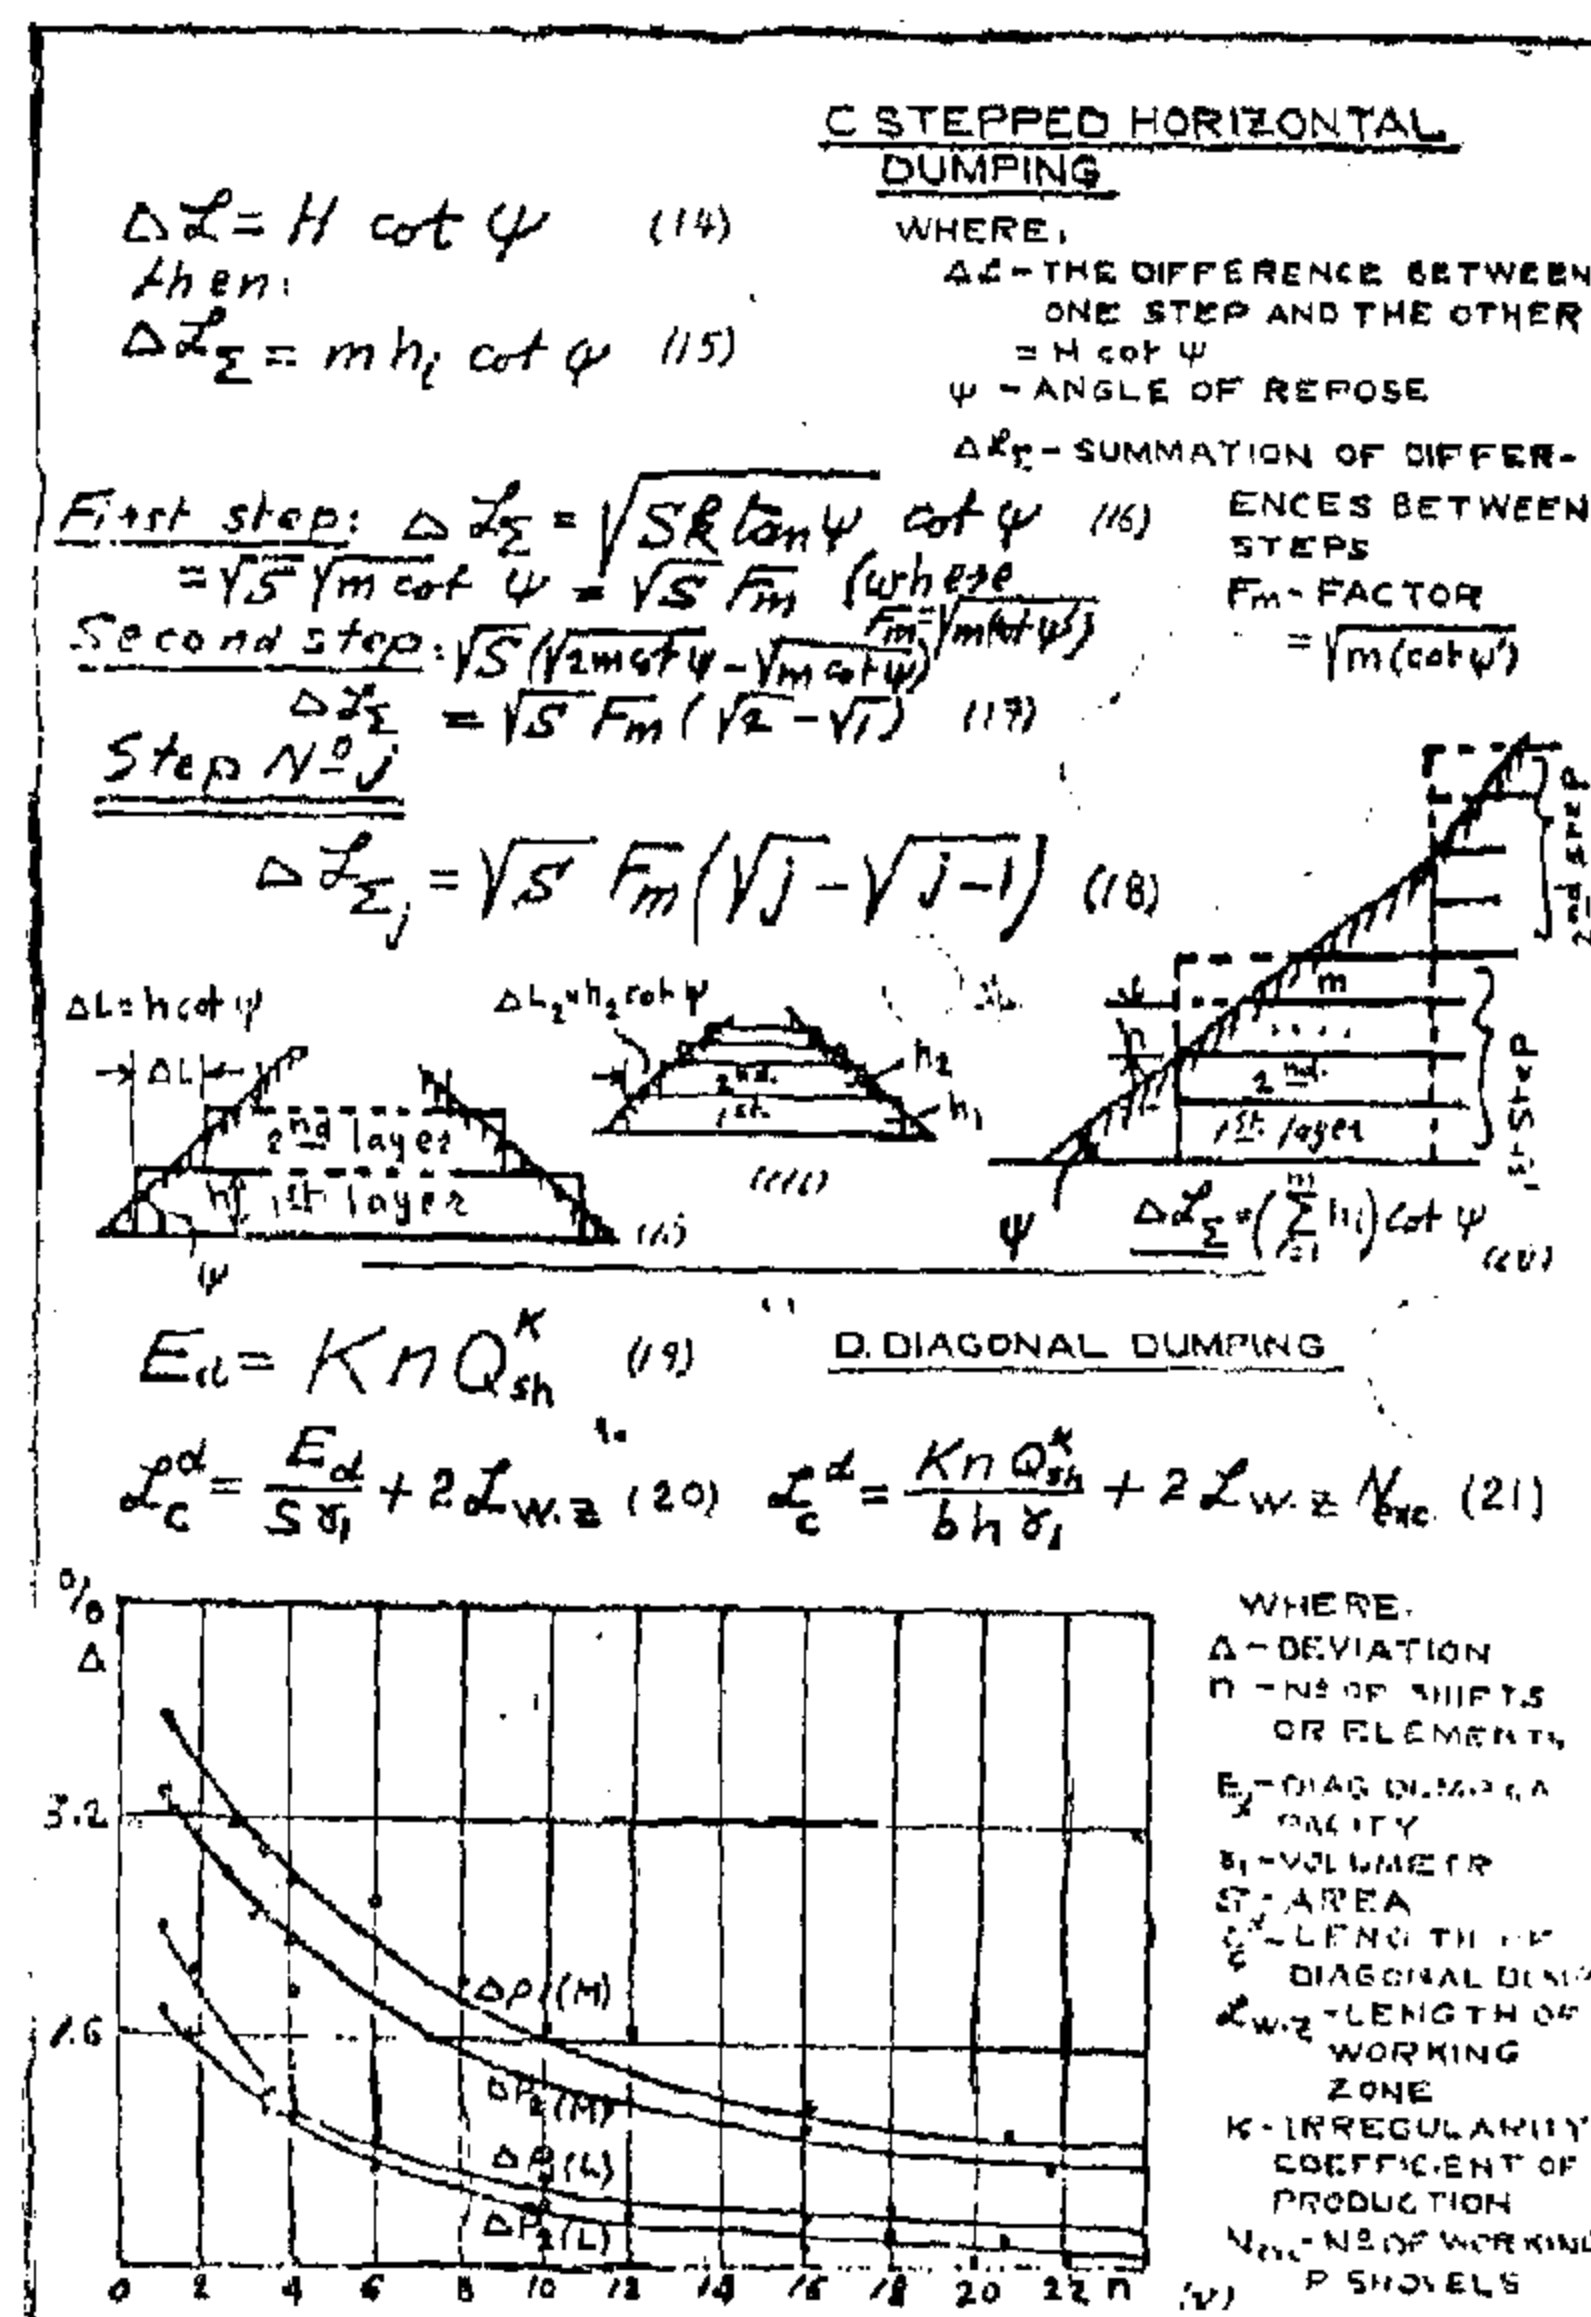 C STEPPED HORIZONTAL
DUMPING
Δℒ = H cot ψ (14)
then:
Δℒ_Σ = m h_i cot ψ (15)
WHERE,
Δℒ - THE DIFFERENCE BETWEEN
ONE STEP AND THE OTHER
= H cot ψ
ψ - ANGLE OF REPOSE
Δℒ_Σ - SUMMATION OF DIFFER-
ENCES BETWEEN
STEPS
Fm - FACTOR
= √m(cot ψ)
First step: Δℒ_Σ = √Sk tan ψ cot ψ (16)
= √S √m cot ψ = √S Fm (where
Fm = √m cot ψ)
Second step: √S (√2m cot ψ - √m cot ψ)
Δℒ_Σ = √S Fm (√2 - √1) (17)
Step Nº j
Δℒ_Σj = √S Fm (√j - √j-1) (18)
ΔL = h cot ψ
ΔL
2nd layer
h 1st layer
ψ
(ii)
ΔL₂ = h₂ cot ψ
h₂
2nd
1st
h₁
(iii)
2nd step
m
....
2nd
1st layer
1st step
ψ
Δℒ_Σ = (Σ hi) cot ψ
D. DIAGONAL DUMPING
E_d = K n Q_sh^K (19)
ℒ_c^d = E_d / S γ₁ + 2 ℒ_w.z (20) ℒ_c^d = K n Q_sh^K / b h γ₁ + 2 ℒ_w.z N_exc. (21)
%
Δ
3.2
1.6
ΔP₁(M)
ΔP₂(M)
ΔP₁(L)
ΔP₂(L)
0 2 4 6 8 10 12 14 16 18 20 22 n (v)
WHERE.
Δ - DEVIATION
n - Nº OF SHIFTS
OR ELEMENTS
E_d - DIAG DUMP CA
PACITY
γ₁ - VOLUMETR
S - AREA
ℒ_c^d - LENGTH OF
DIAGONAL DUMP
ℒ_w.z - LENGTH OF
WORKING
ZONE
K - IRREGULARITY
COEFFICIENT OF
PRODUCTION
N_exc - Nº OF WORKING
P SHOVELS